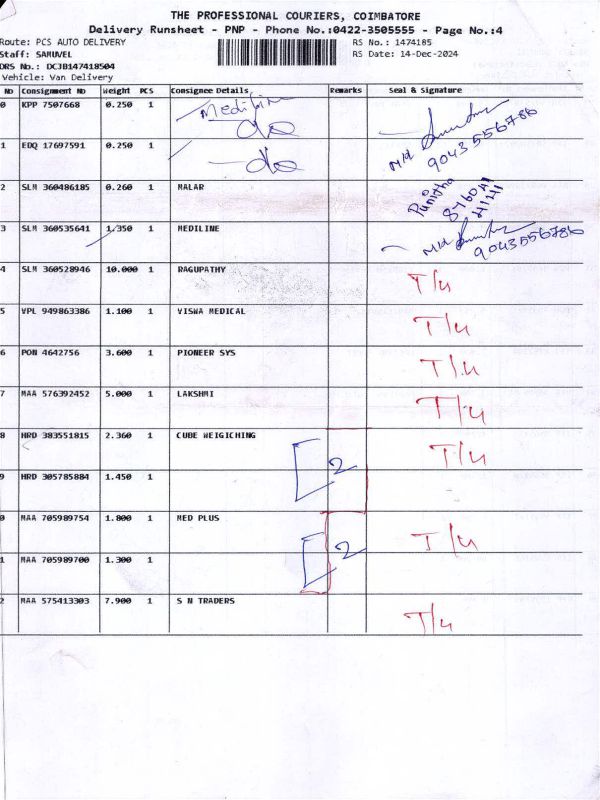 THE PROFESSIONAL COURIERS, COIMBATORE
Delivery Runsheet - PNP - Phone No.:0422-3505555 - Page No.:4
Route: PCS AUTO DELIVERY RS No.: 1474185
Staff: SAMUVEL RS Date: 14-Dec-2024
DRS No.: DCJB147418504
Vehicle: Van Delivery
No Consignment No Weight PCS Consignee Details Remarks Seal & Signature
0 KPP 7507668 0.250 1 Mediline
do 9043556786
1 EDQ 17697591 0.250 1 do
2 SLM 360486185 0.260 1 MALAR Punitha
876041
4141
3 SLM 360535641 1.350 1 MEDILINE 9043556786
4 SLM 360528946 10.000 1 RAGUPATHY T/4
5 VPL 949863386 1.100 1 VISWA MEDICAL T/4
6 PON 4642756 3.600 1 PIONEER SYS T/4
7 MAA 576392452 5.000 1 LAKSHMI T/4
8 HRD 383551815 2.360 1 CUBE WEIGICHING 2 T/4
9 HRD 305785884 1.450 1
0 MAA 705989754 1.800 1 MED PLUS 2 T/4
1 MAA 705989700 1.300 1
2 MAA 575413303 7.900 1 S N TRADERS T/4